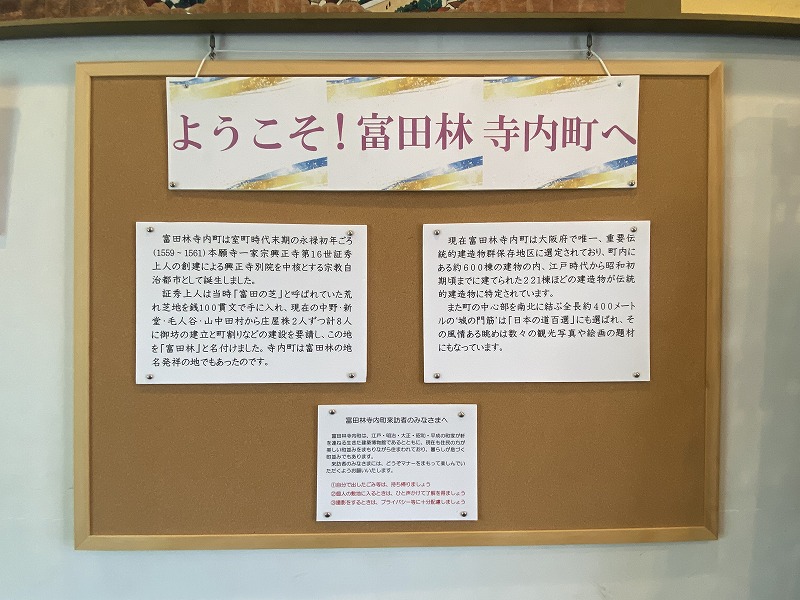 ようこそ！富田林 寺内町へ
富田林寺内町は室町時代末期の永禄初年ごろ
(1559～1561)本願寺一家宗興正寺第16世証秀
上人の創建による興正寺別院を中核とする宗教自
治都市として誕生しました。
証秀上人は当時「富田の芝」と呼ばれていた荒
れ芝地を銭100貫文で手に入れ、現在の中野・新
堂・毛人谷・山中田村から庄屋株2人ずつ計8人
に御坊の建立と町割りなどの建設を要請し、この地
を「富田林」と名付けました。寺内町は富田林の地
名発祥の地でもあったのです。
現在富田林寺内町は大阪府で唯一、重要伝
統的建造物群保存地区に選定されており、町内に
ある約600棟の建物の内、江戸時代から昭和初
期頃までに建てられた221棟ほどの建造物が伝統
的建造物に特定されています。
また町の中心部を南北に結ぶ全長約400メート
ルの"城の門筋"は「日本の道百選」にも選ばれ、そ
の風情ある眺めは数々の観光写真や絵画の題材
にもなっています。
富田林寺内町来訪者のみなさまへ
富田林寺内町は、江戸・明治・大正・昭和・平成の町家が軒
を連ねる生きた建築博物館であるとともに、現在も住民の方が
美しい町並みをまもりながら住まわれており、暮らしが息づく
町並みでもあります。
来訪者のみなさまには、どうぞマナーをまもって楽しんでい
ただくようお願いいたします。
①自分で出したごみ等は、持ち帰りましょう
②個人の敷地に入るときは、ひと声かけて了解を得ましょう
③撮影をするときは、プライバシー等に十分配慮しましょう